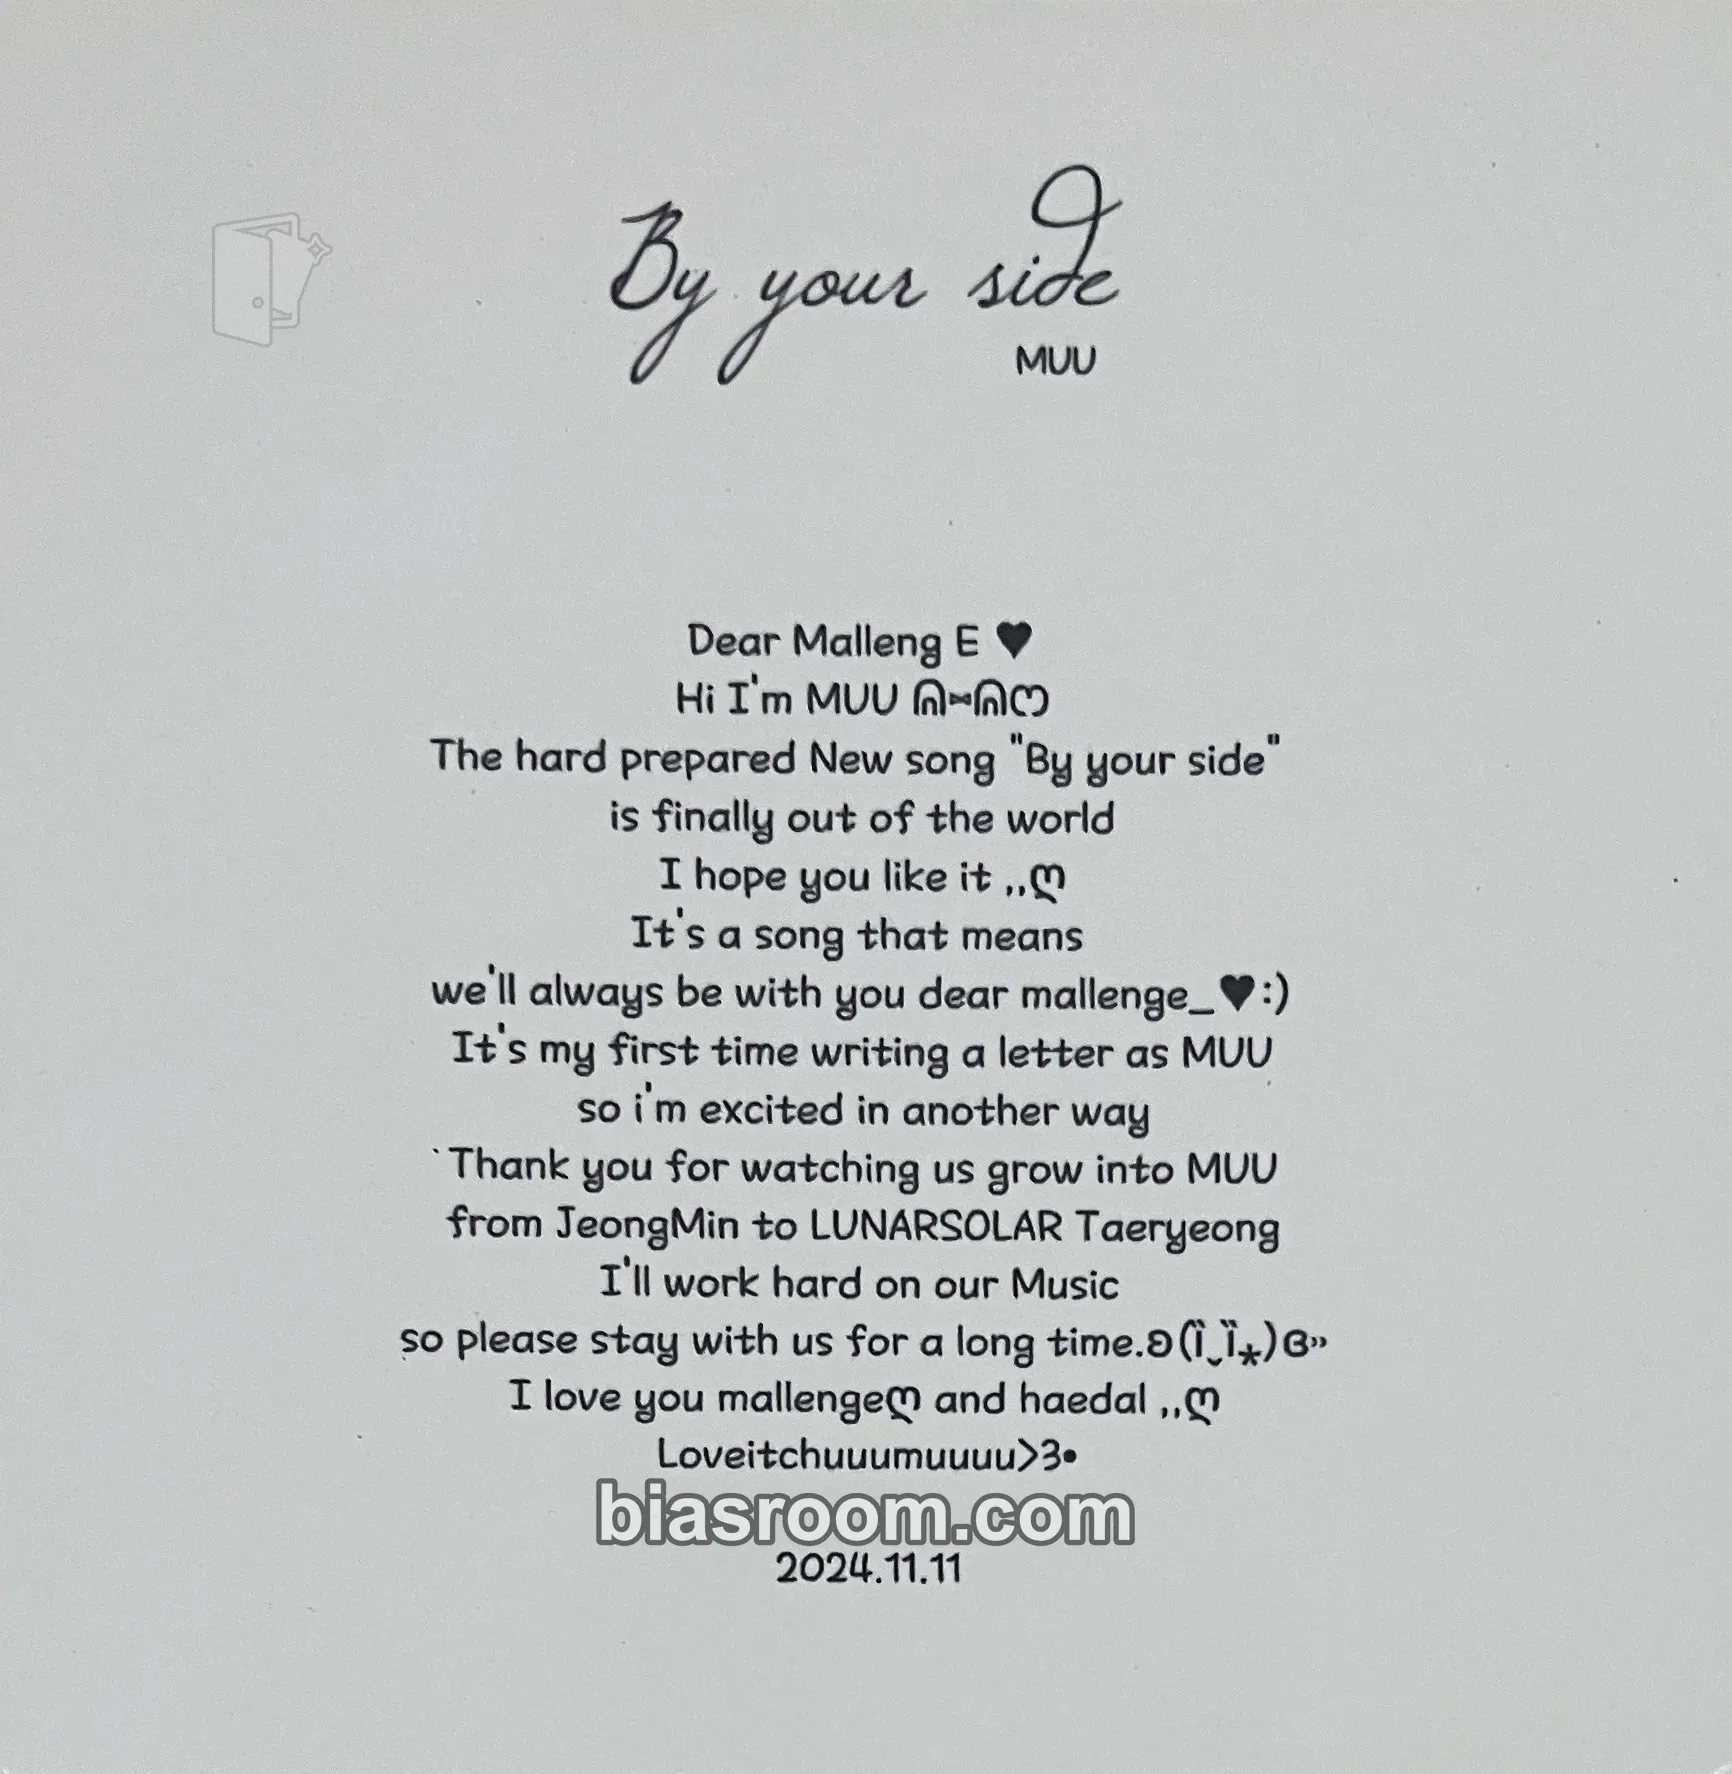 By your side
MUU
Dear Malleng E ♥
Hi I'm MUU ᕱ⑅ᕱෆ
The hard prepared New song "By your side"
is finally out of the world
I hope you like it ,,ღ
It's a song that means
we'll always be with you dear mallenge_♥:)
It's my first time writing a letter as MUU
so i'm excited in another way
`Thank you for watching us grow into MUU
from JeongMin to LUNARSOLAR Taeryeong
I'll work hard on our Music
so please stay with us for a long time.ʚ(ȉˬȉ⁎)ɞ»
I love you mallengeღ and haedal ,,ღ
Loveitchuuumuuuu>3•
biasroom.com
2024.11.11